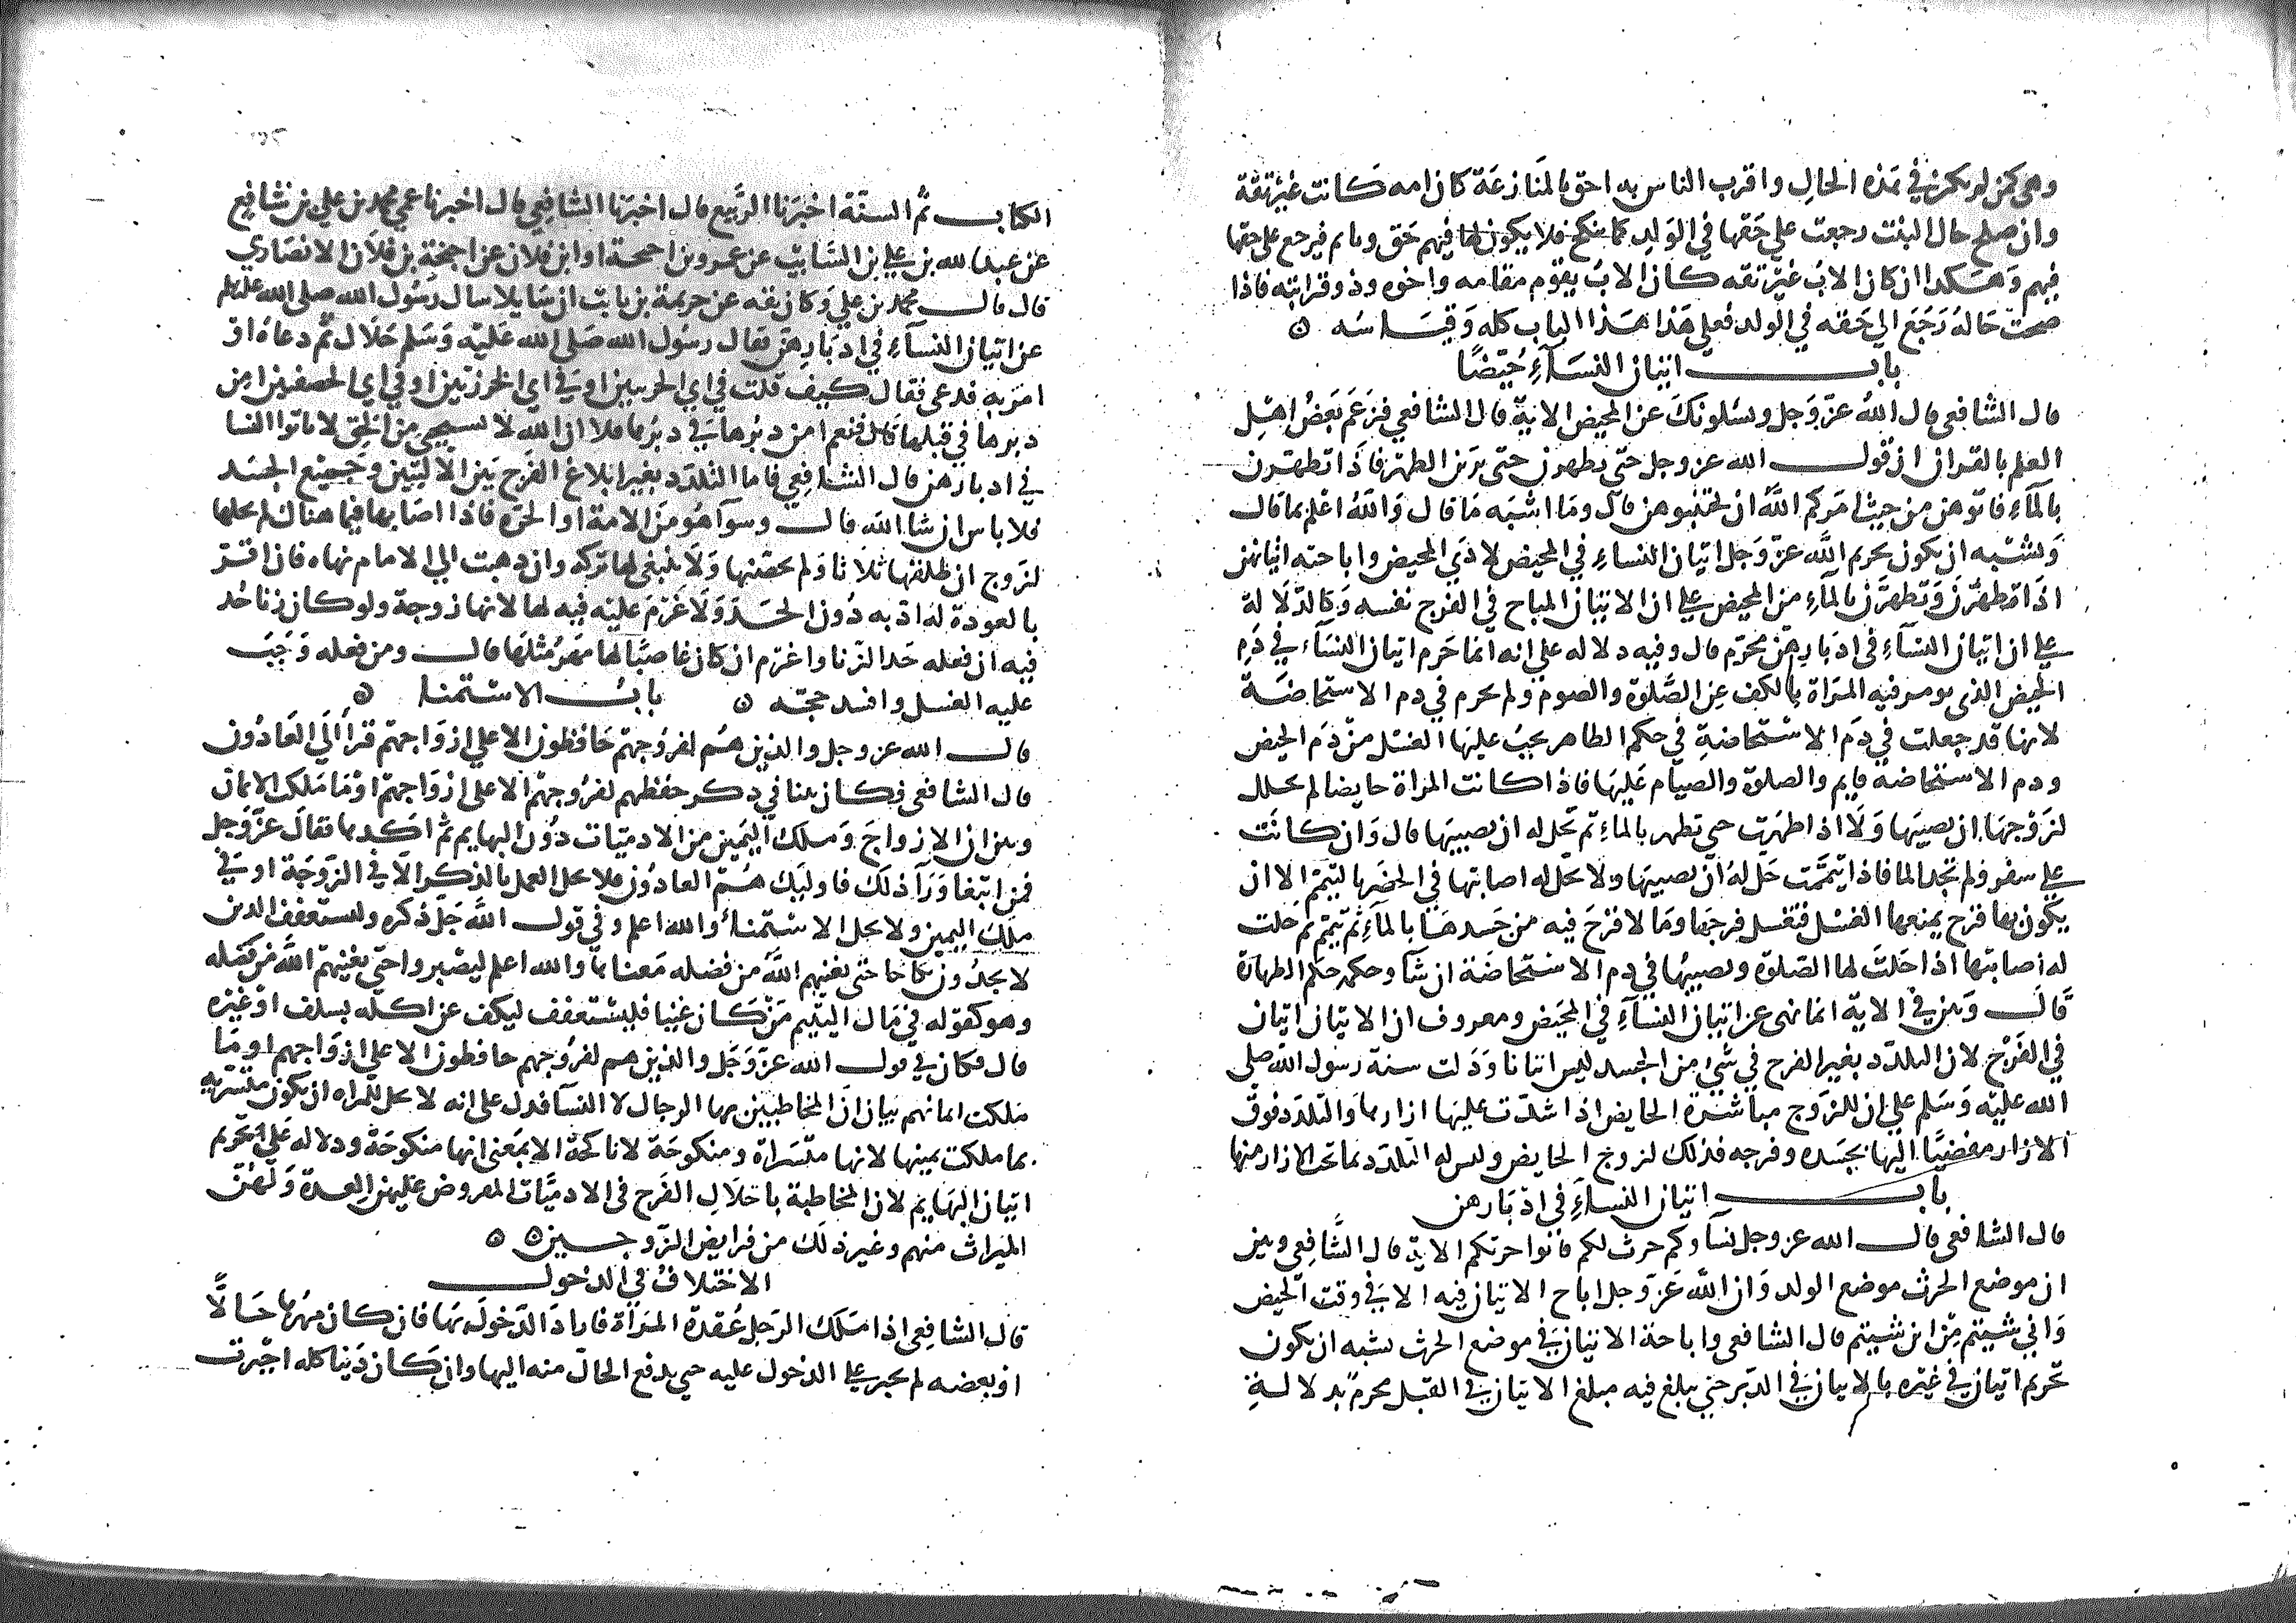 وهي كمن لم يكن في هذه الحال واقرب الناس به احق بالمنازعة كان امه كانت غير ثقة
وان صلح حال البنت رجعت علي حقها في الولد كما تنكح فلا يكون لها فيهم حق وتايم فيرجع على حقها
فيهم وهكدا ان كان الاب غير ثقه كان الاب يقوم مقامه واخوه وذو قرابته فاذا
صحت حاله رجع الي حقه في الولد فعلي هذا هذا الباب كله وقياسه ٥
باب اتيان النساء حيضا
قال الشافعي قال الله عز وجل وسئلونك عن المحيض الاية قال الشافعي فزعم بعض اهل
العلم بالقران ان قول الله عز وجل حتى يطهرن حتى يرين الطهر فاذا تطهرن
بالماء فاتوهن من حيث امركم الله ان تجتنبوهن قال وما اشبه ما قال والله اعلم بما قال
ويشبه ان يكون تحريم الله عز وجل اتيان النساء في المحيض لاذي المحيض واباحته اتيانهن
اذا تطهرن وتطهرن بالماء من المحيض علي ان الاتيان المباح في الفرج نفسه وكالدلالة
علي ان اتيان النساء في ادبارهن محرم قال وفيه دلاله علي انه انما حرم اتيان النساء في دم
الحيض الذي يومر فيه المراة بالكف عن الصلوة والصوم ولم يحرم في دم الاستحاضة
لانها قد جعلت في دم الاستحاضة في حكم الطاهر يجب عليها الغسل من دم الحيض
ودم الاستحاضه قايم والصلوة والصيام عليها فاذا كانت المراة حايضا لم يحلل
لزوجها ان يصيبها ولا اذا طهرت حتى تطهر بالماء ثم تحل له ان يصيبها قال وان كانت
علي سفر ولم تجد الما فاذا تيممت حل له ان يصيبها ولا تحل له اصابتها في الحضر بالتيمم الا ان
يكون بها قرح يمنعها الغسل فتغسل فرجها وما لا قرح فيه من جسدها بالماء ثم تيمم ثم حلت
له اصابتها اذا حلت لها الصلوة ويصيبها في دم الاستحاضة ان شا وحكمه حكم الطهارة
قال وبين في الاية انما نهى عن اتيان النساء في المحيض ومعروف ان الاتيان اتيان
في الفرج لان التلدد بغير الفرج في شيء من الجسد ليس اتيانا ودلت سنة رسول الله صلى
الله عليه وسلم علي ان للزوج مباشرة الحايض اذا شدت عليها ازارها والتلدد فوق
الازار مفضيا اليها بجسده وفرجه فذلك لزوج الحايض وليس له التلدد بما تحت الازار منها
باب اتيان النساء في ادبارهن
قال الشافعي قال الله عز وجل نساوكم حرث لكم فاتوا حرثكم الاية قال الشافعي وبين
ان موضع الحرث موضع الولد وان الله عز وجل اباح الاتيان فيه الا في وقت الحيض
واني شيتم من اين شيتم قال الشافعي واباحة الاتيان في موضع الحرث يشبه ان يكون
تحريم اتيان في غيره بالاتيان في الدبر حتى يبلغ فيه مبلغ الاتيان في القبل محرم بدلالة
الكتاب ثم السنة اخبرنا الربيع قال اخبرنا الشافعي قال اخبرنا عمي محمد بن علي بن شافع
عن عبد الله بن علي بن السايب عن عمرو بن احيحة او ابن فلان عن احيحة بن فلان الانصاري
قال قال محمد بن علي وكان ثقه عن خزيمة بن ثابت ان سايلا سال رسول الله صلى الله عليه وسلم
عن اتيان النساء في ادبارهن فقال رسول الله صلى الله عليه وسلم حلال ثم دعاه او
امر به فدعى فقال كيف قلت في اي الخربتين او في اي الخرزتين او في اي الخصفتين امن
دبرها في قبلها قال فنعم امن دبرها في دبرها فلا ان الله لا يستحيي من الحق لا تاتوا النسا
في ادبارهن قال الشافعي فاما التلدد بغير ابلاغ الفرج بين الاليتين وجميع الجسد
فلا باس ان شا الله قال وسوآ هو من الامة او الحره فاذا اصابها فيما هناك لم يحلها
لزوج ان طلقها ثلاثا ولم يحصنها ولا ينبغي لها تركه وان ذهبت الي الامام نهاه فان اقر
بالعودة له ادبه دون الحد ولا غرم عليه فيه لها لانها زوجة ولو كان زنا حد
فيه ان فعله حد الزنا واغرم ان كان غاصبا لها مهر مثلها قال ومن فعله وجب
عليه الغسل وافسد حجه ٥ باب الاستمنا ٥
قال الله عز وجل والذين هم لفروجهم حافظون الا علي ازواجهم قرا الي العادون
قال الشافعي فكان بينا في ذكر حفظهم لفروجهم الا على ازواجهم او ما ملكت الايمان
وبين ان الازواج وملك اليمين من الادميات دون البهايم ثم اكدها فقال عز وجل
فمن ابتغا ورآ ذلك فاوليك هم العادون فلا يحل العمل بالذكر الا في الزوجة او في
ملك اليمين ولا يحل الاستمناء والله اعلم وفي قول الله جل ذكره وليستعفف الذين
لا يجدون نكاحا حتى يغنيهم الله من فضله معناها والله اعلم ليصبروا حتى يغنيهم الله من فضله
وهو كقوله في مال اليتيم من كان غنيا فليستعفف ليكف عن اكله بسلف او غيره
قال فكان في قول الله عز وجل والذين هم لفروجهم حافظون الا علي ازواجهم او ما
ملكت ايمانهم بيان ان المخاطبين بها الرجال لا النسآ فدل على انه لا يحل للمراه ان تكون متسريه
بما ملكت يمينها لانها متسراة ومنكوحة لا ناكحة الا بمعنى انها منكوحة ودلاله علي تحريم
اتيان البهايم لان المخاطبة باحلال الفرج في الادميات المفروض عليهن العدة ولهن
الميراث منهم وغير ذلك من فرايض الزوجين ٥ ٥
الاختلاف في الدخول
قال الشافعي اذا ملك الرجل عقدة المراة فاراد الدخول بها فان كان مهرها حالا
او بعضه لم يجبر علي الدخول عليه حتى يدفع الحال منه اليها وان كان دينا كله اجبرت